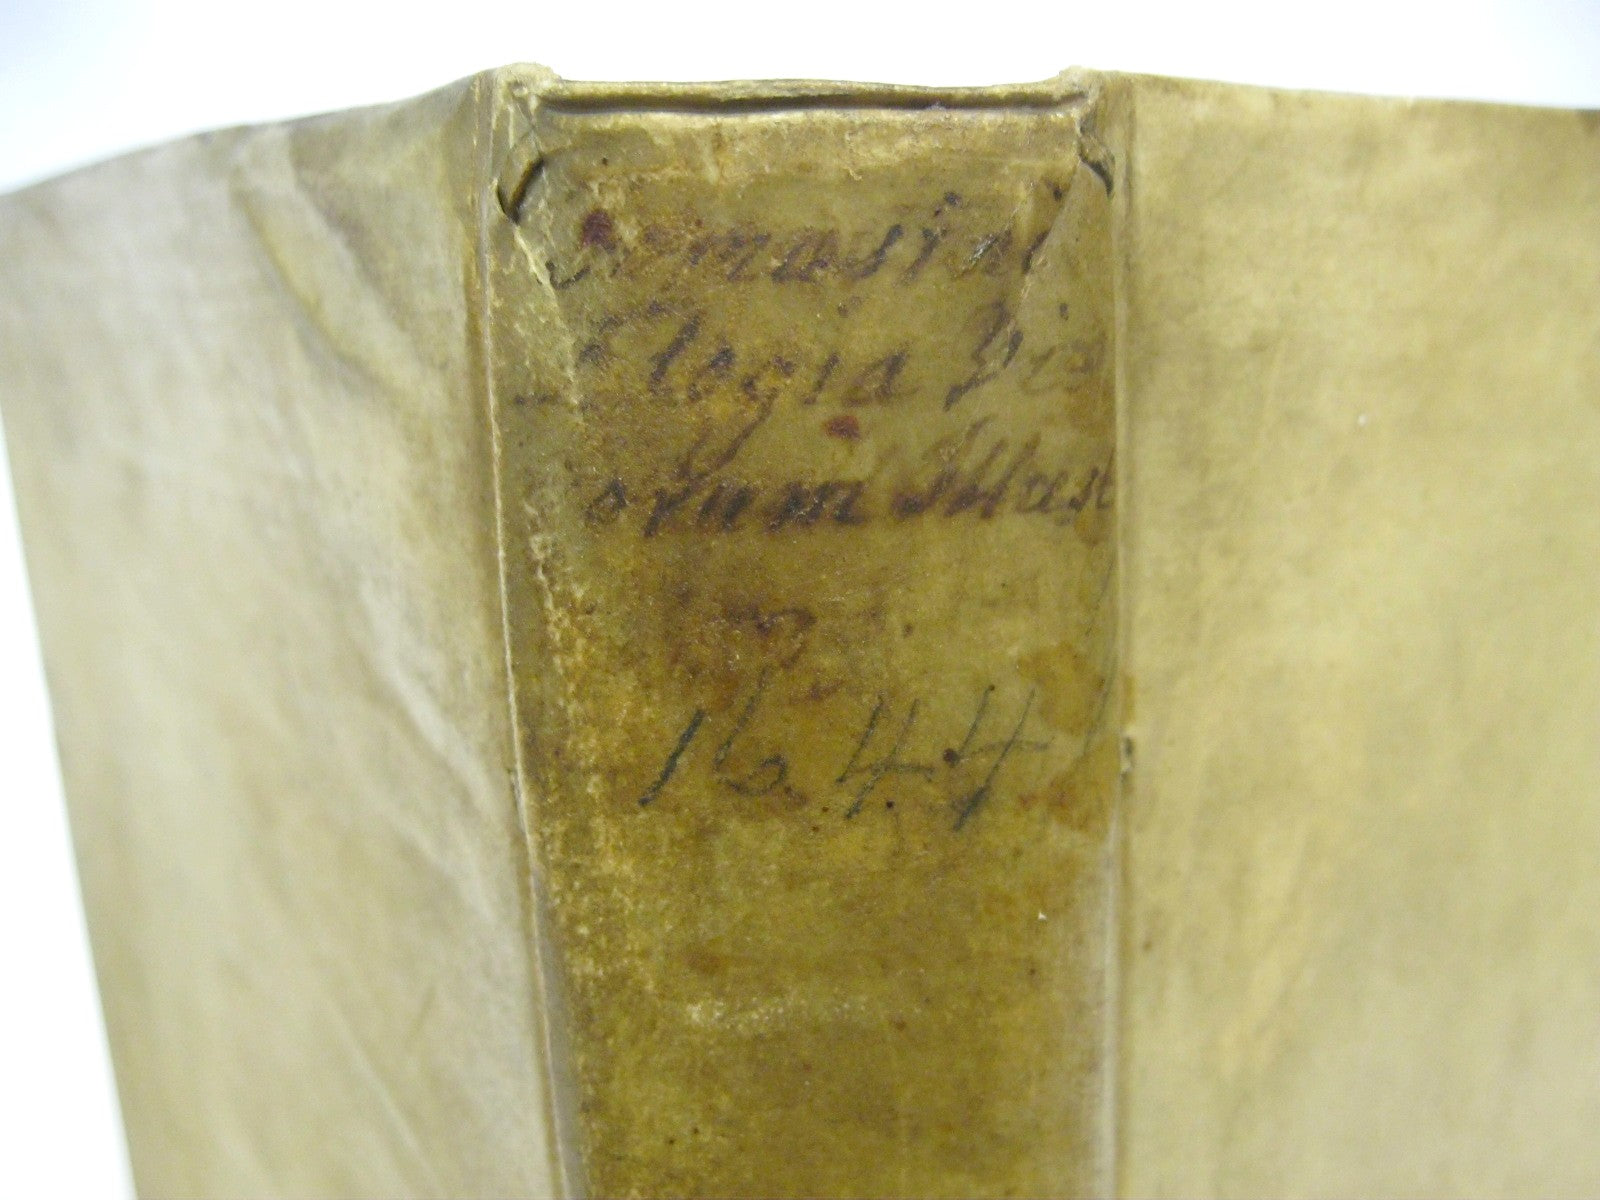 Tomasini
Elogia Vir
orum Illust
1644